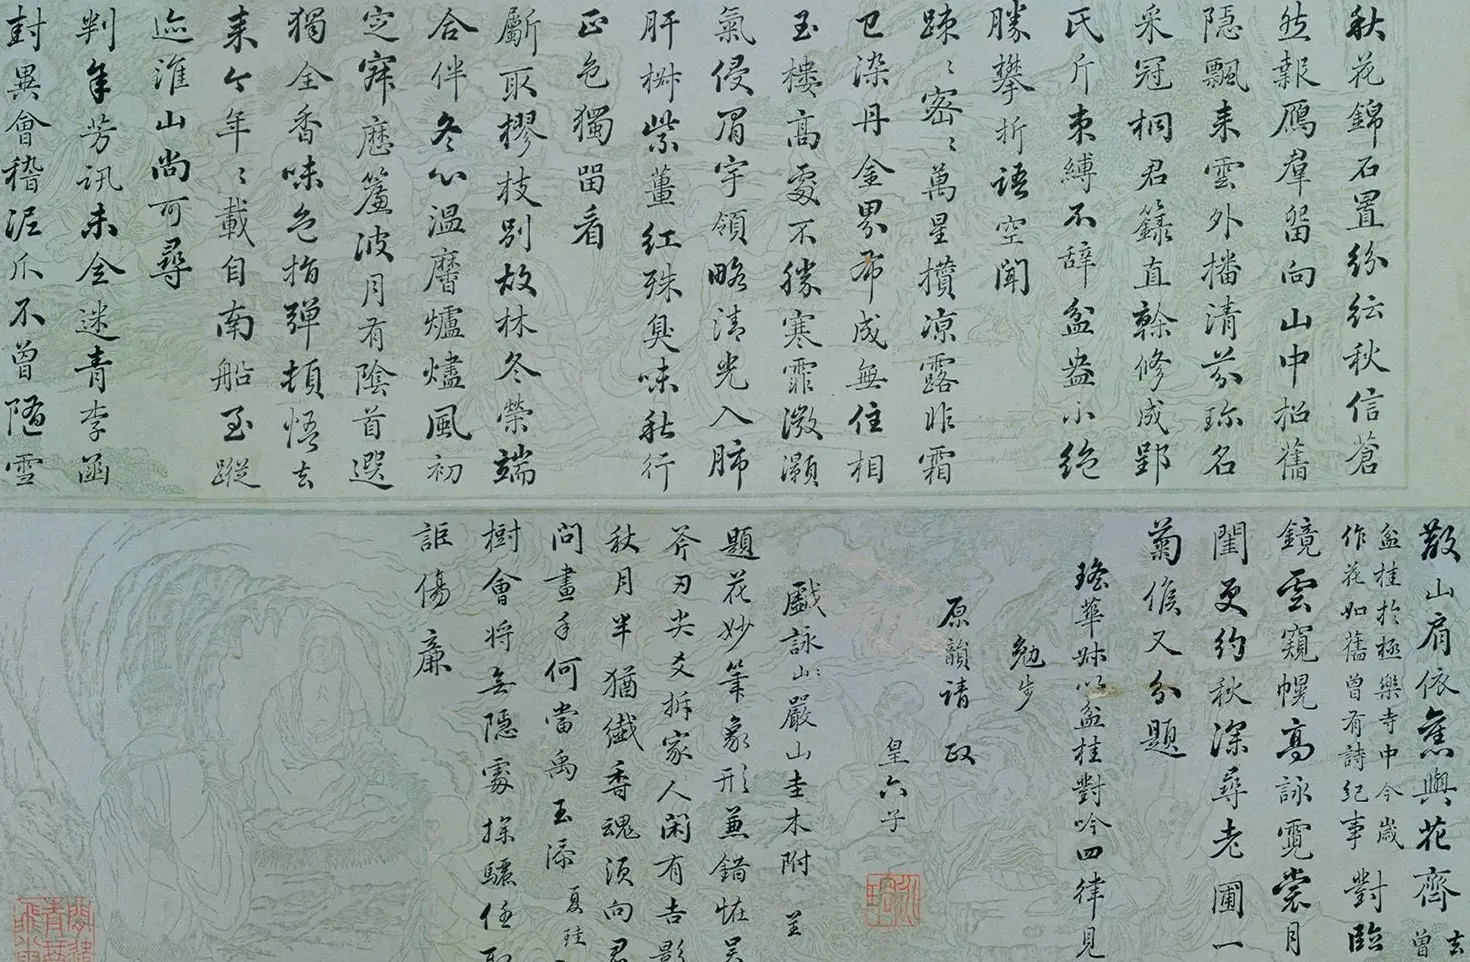 秋花錦石置紛紜秋信蒼
然報鴈羣留向山中招舊
隱飄来雲外播清芬珎名
采冠桐君籙直榦修成郢
氏斤束縛不辞盆盎小絶
勝攀折語空聞
踈〻密〻萬星攢凉露昨霜
已染丹金界布成無住相
玉樓高處不勝寒霏微灝
氣侵眉宇領略清光入肺
肝桝紫薑紅殊臭味秋行
正色獨留看
斸取樛枝别故林冬榮端
合伴冬心温黁爐燼風初
定寐𢊍簾波月有陰首選
獨全香味色指弹頓悟去
来今年〻載自南船至蹤
迹淮山尚可尋
判年芳訊未全迷青李函
封異會稽泥爪不曾随雪
散山肩依舊與花齊 去曾
盆桂於極樂寺中今歲
作花如舊曾有詩紀事
對臨
鏡雲窺幌高詠霓裳月
閨更約秋深尋老圃一
菊候又分題
瑤華姊以盆桂對吟四律見
勉步
原韻請政
皇六子
戲詠山嚴山圭木附
題花妙筆象形兼錯恠吴
斧刃尖爻拆家人閑有吉影
秋月半猶纎香魂須向君
問畫手何當禹玉添 夏珪
樹會将無隠處探驪任
詎傷廉